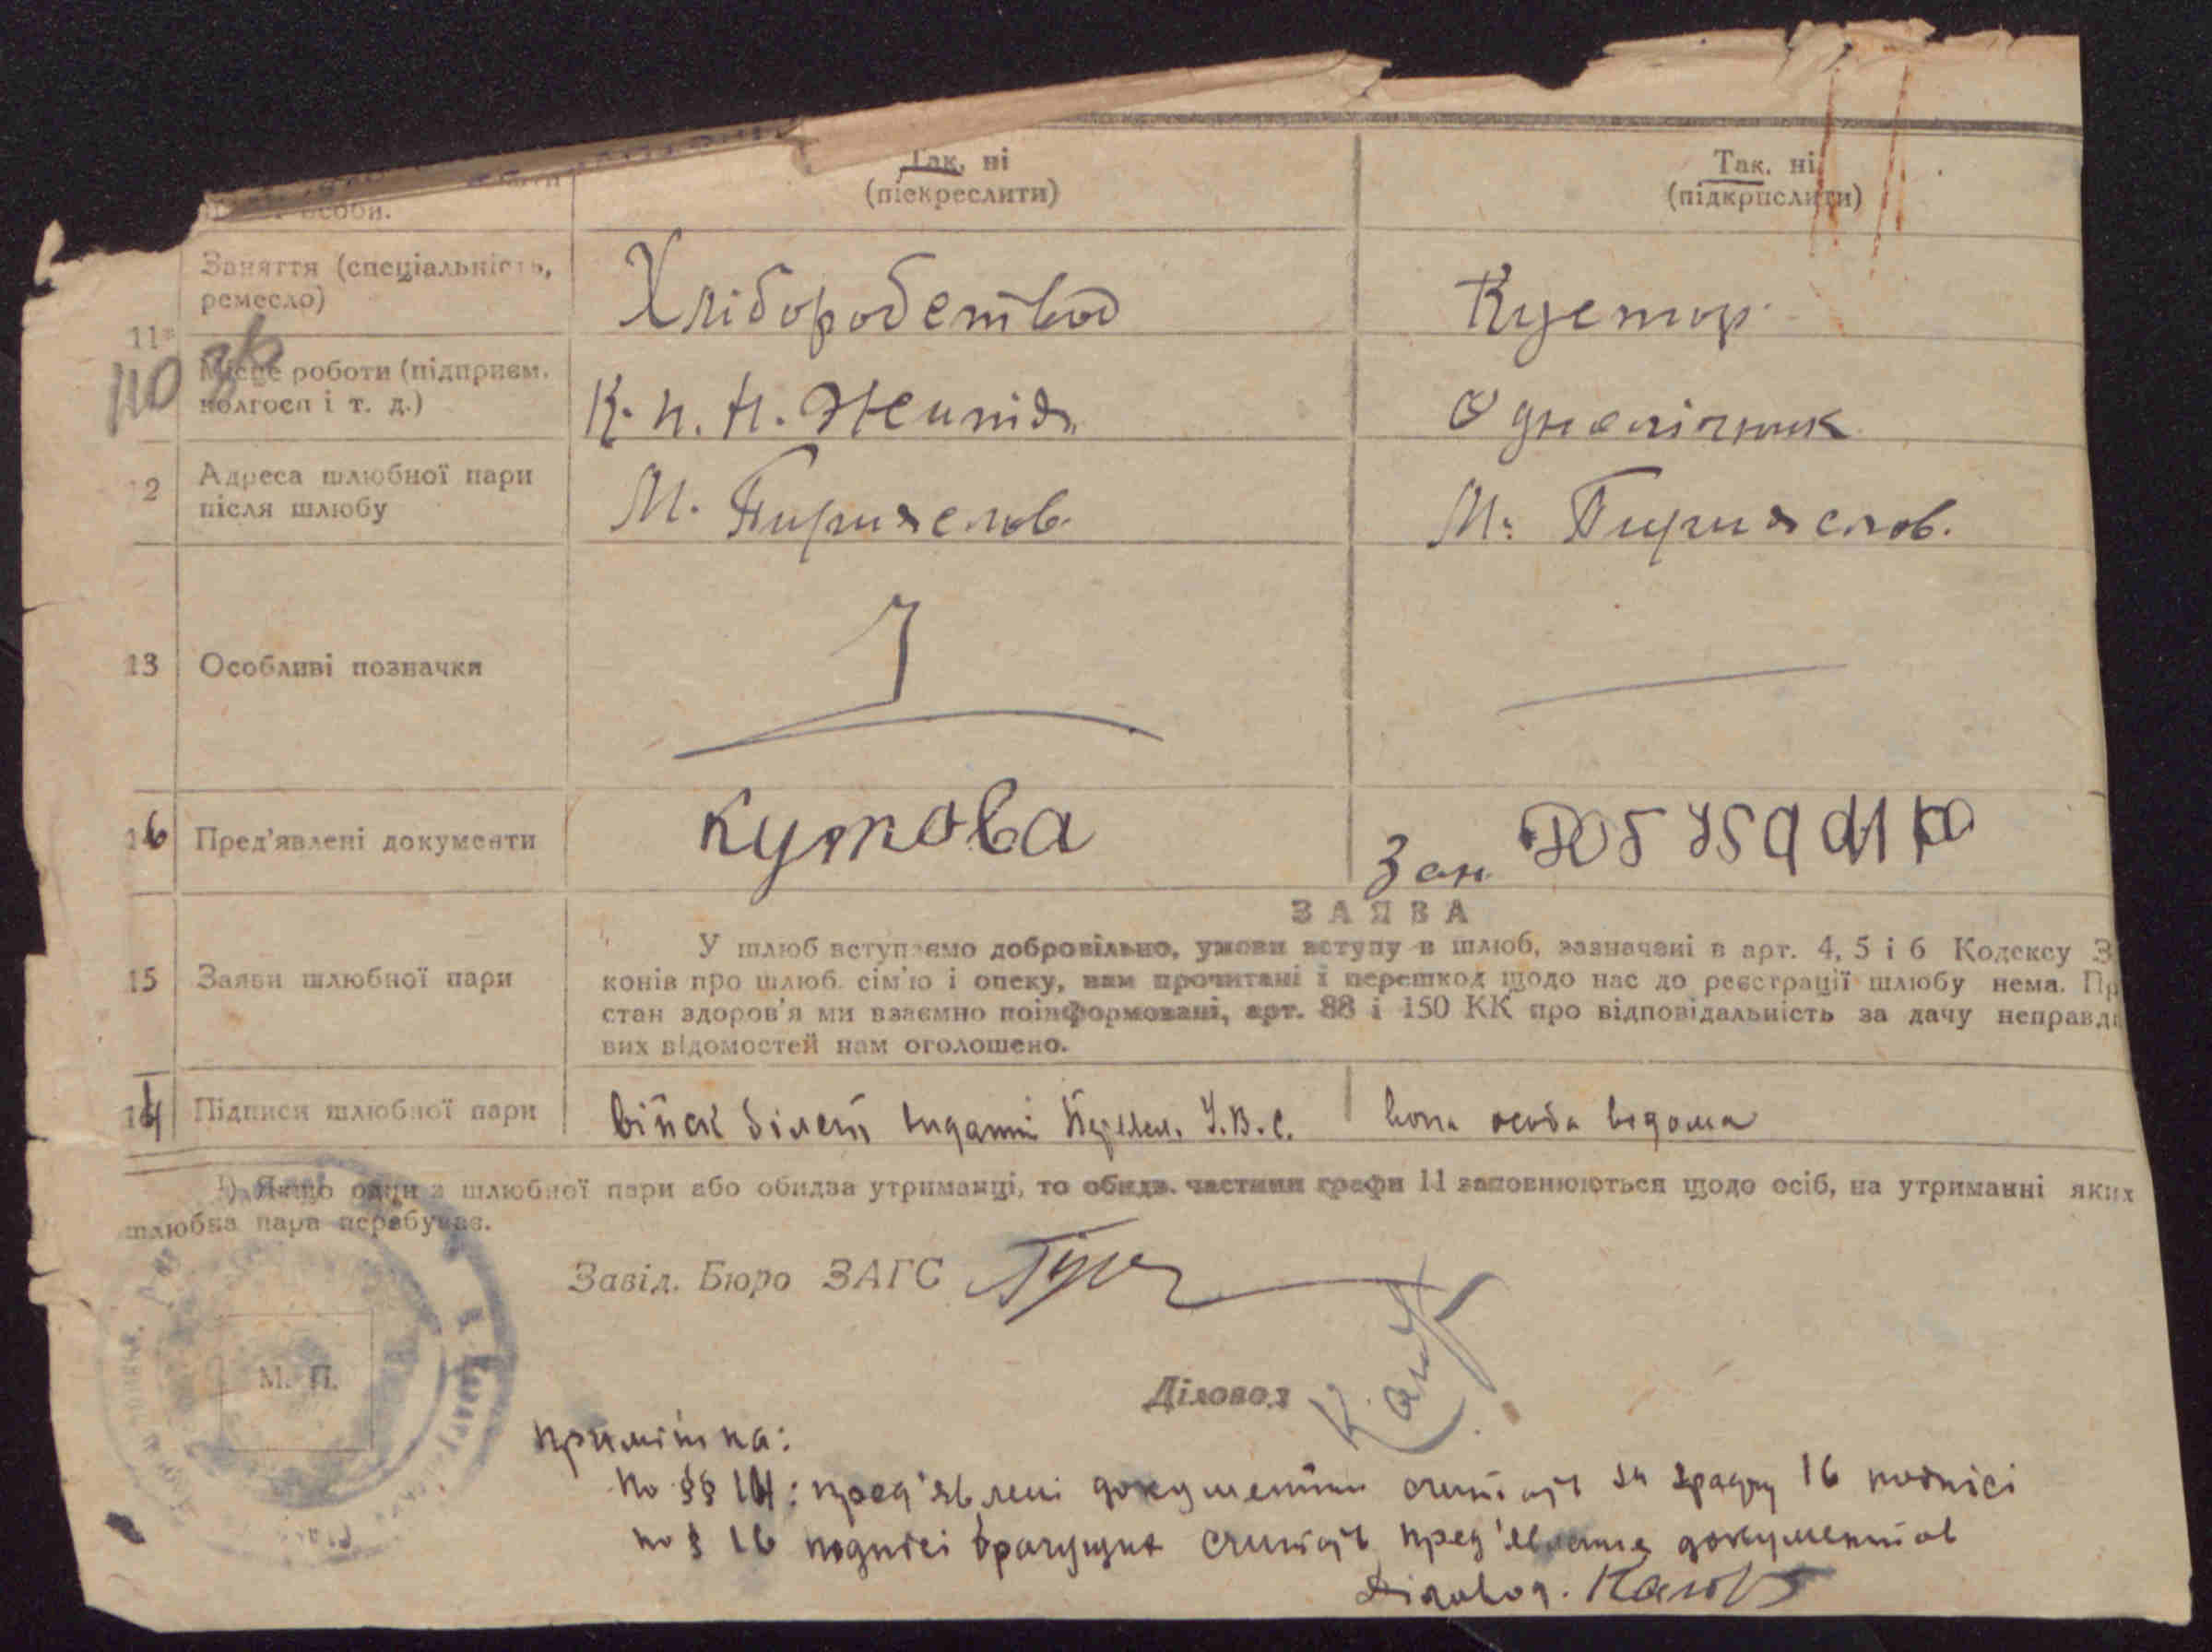 особи.
Так, ні
(піекреслити)
Так. ні
(підкрпслити)
Заняття (спеціальність,
ремесло)
Хлібороб
Кустор
11
110
Місце роботи (підприєм.
колгосп і т. д.)
К. п. Н.
Одноличник
12
Адреса шлюбної пари
після шлюбу
М.
М.
13
Особливі позначки
16
Пред'явлені документи
Кутова
Зан
ЗАЯВА
15
Заяви шлюбної пари
У шлюб вступаємо добровільно, умови вступу в шлюб, зазначені в арт. 4, 5 і 6 Кодексу З
конів про шлюб. сім'ю і опеку, нам прочитані і перешкод щодо нас до реєстрації шлюбу нема. Пр
стан здоров'я ми взаємно поінформовані, арт. 88 і 150 КК про відповідальність за дачу неправди
вих відомостей нам оголошено.
14
Підписи шлюбної пари
війск білет видатий У.В.С.
вона особа відома
1) Якщо один з шлюбної пари або обидва утриманці, то обидв. частини графи 11 заповнюються щодо осіб, на утриманні яких
шлюбна пара перебуває.
Завід. Бюро ЗАГС
М. П.
Діловод
примітка:
по §§ 14: пред'явлені документи считать за графу 16 подпісі
по § 16 подпісі брачущих считать пред'явление документов
Діловод.